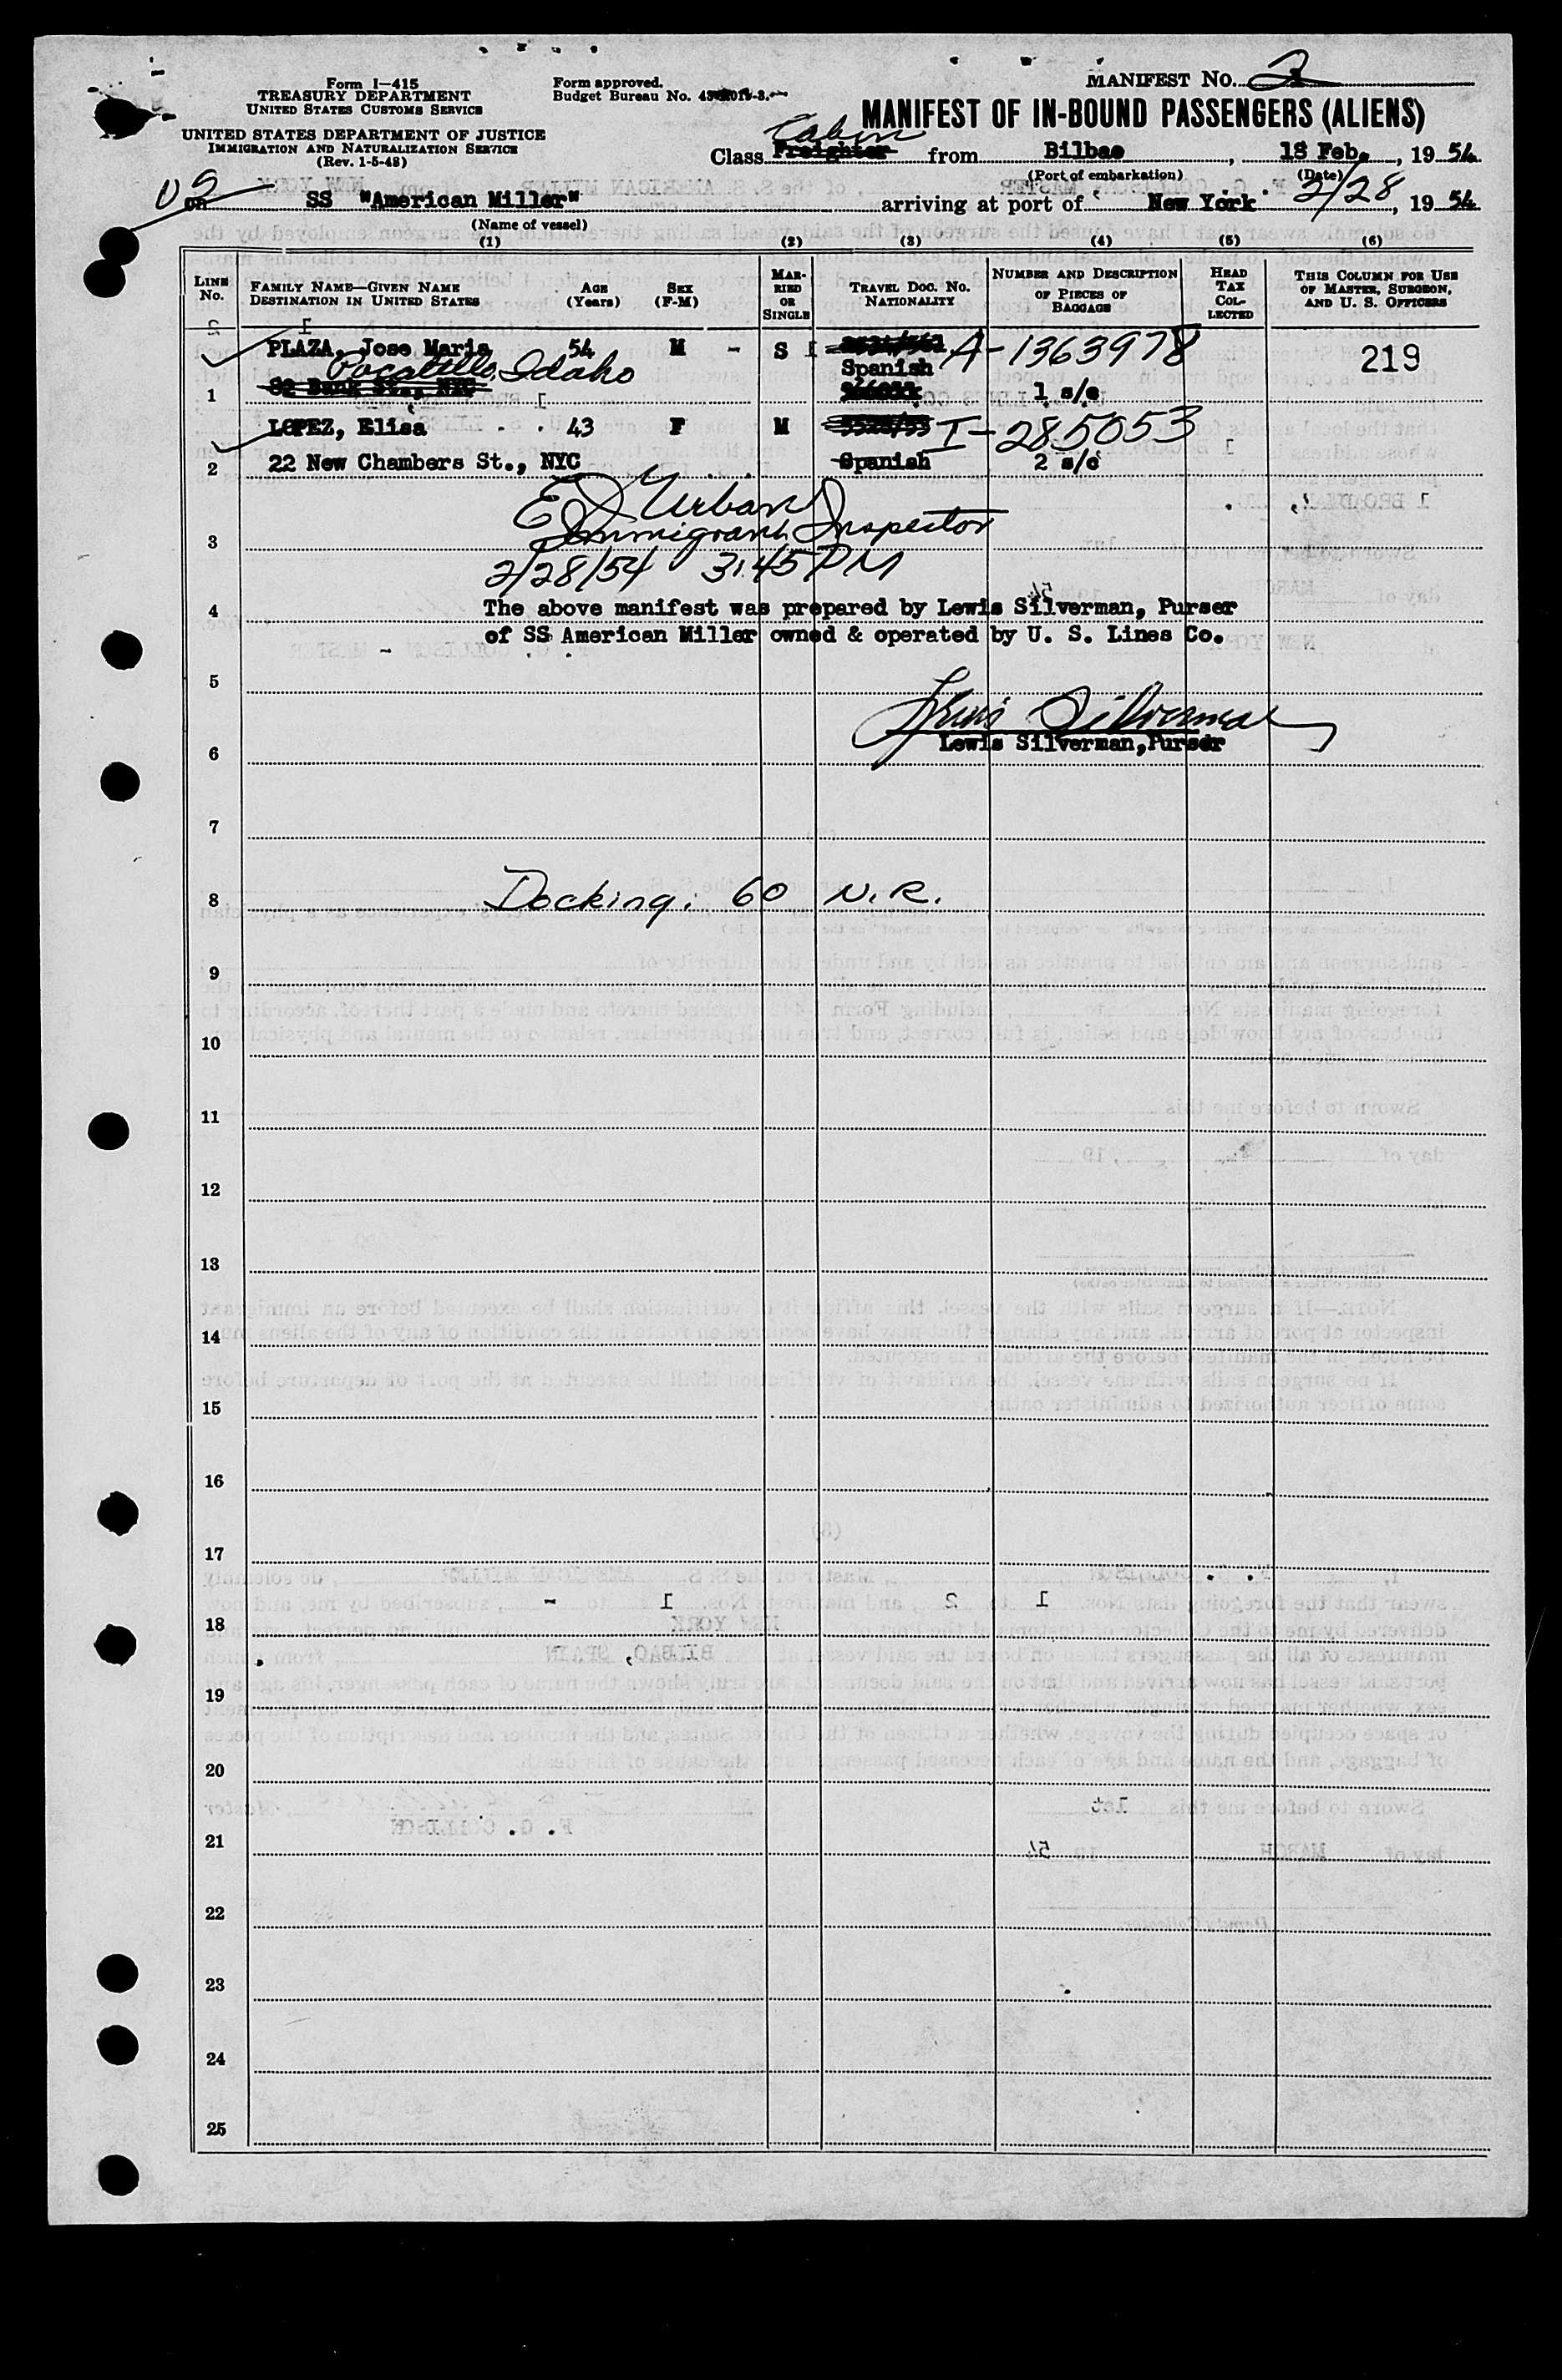 Form I-415
TREASURY DEPARTMENT
UNITED STATES CUSTOMS SERVICE
UNITED STATES DEPARTMENT OF JUSTICE
IMMIGRATION AND NATURALIZATION SERVICE
(Rev. 1-5-48)
Form approved.
Budget Bureau No.
MANIFEST NO. 2
MANIFEST OF IN-BOUND PASSENGERS (ALIENS)
Cabin
Class Freighter from Bilbao, 18 Feb., 1954
(Port of embarkation) (Date)
on SS "American Miller" arriving at port of New York 2/28, 1954
(Name of vessel)
(1) (2) (3) (4) (5) (6)
LINE No.
FAMILY NAME—GIVEN NAME
DESTINATION IN UNITED STATES
AGE (Years)
SEX (F-M)
MARRIED OR SINGLE
TRAVEL DOC. NO.
NATIONALITY
NUMBER AND DESCRIPTION OF PIECES OF BAGGAGE
HEAD TAX COLLECTED
THIS COLUMN FOR USE OF MASTER, SURGEON, AND U. S. OFFICERS
PLAZA, Jose Maria 54 M - S A-1363978 219
Pocatello, Idaho Spanish
1 82 Bank St., NYC 1 s/c
LOPEZ, Elisa 43 F M I-285053
2 22 New Chambers St., NYC Spanish 2 s/c
E J Urban
Immigrant Inspector
3
2/28/54 3:45 PM
4 The above manifest was prepared by Lewis Silverman, Purser
of SS American Miller owned & operated by U. S. Lines Co.
5
Lewis Silverman
6 Lewis Silverman, Purser
7
8 Docking: 60 N.R.
9
10
11
12
13
14
15
16
17
18
19
20
21
22
23
24
25